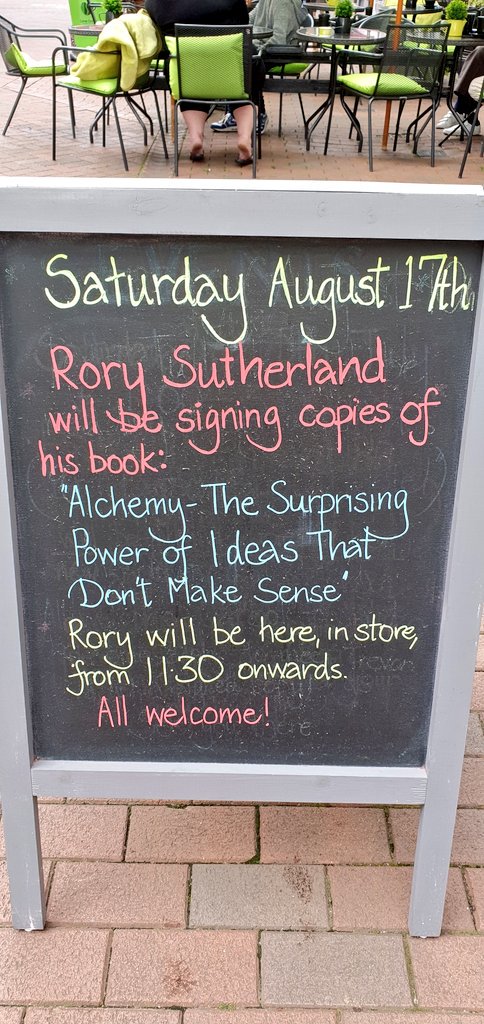 Saturday August 17th
Rory Sutherland
will be signing copies of
his book:
"Alchemy - The Surprising
Power of Ideas That
Don't Make Sense"
Rory will be here, in store,
from 11·30 onwards.
All welcome!